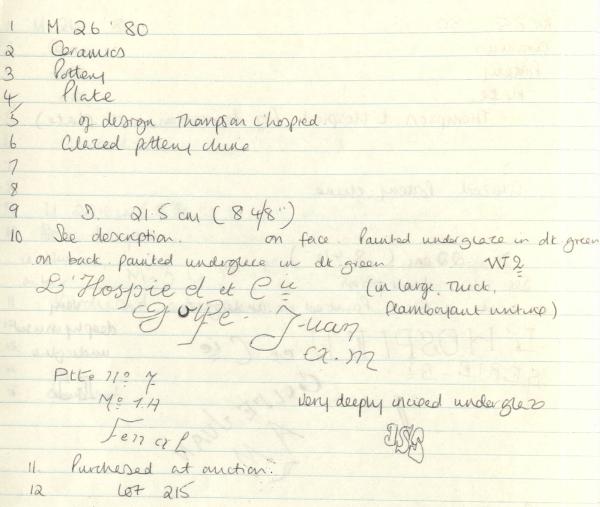 1 M 26 '80
2 Ceramics
3 Pottery
4 Plate
5 of design Thompson L'hospied
6 Glazed pottery chine
7
8
9 D. 21.5 cm (8 4/8")
10 See description. on face. Painted underglaze in dk green
on back painted underglaze in dk green W2
L'Hospied et Cie (in large, thick,
Golfe. Juan flamboyant writing)
a.m
Ptte no 7
Mo 1A very deeply incised underglaze
11 Purchased at auction.
12 Lot 215